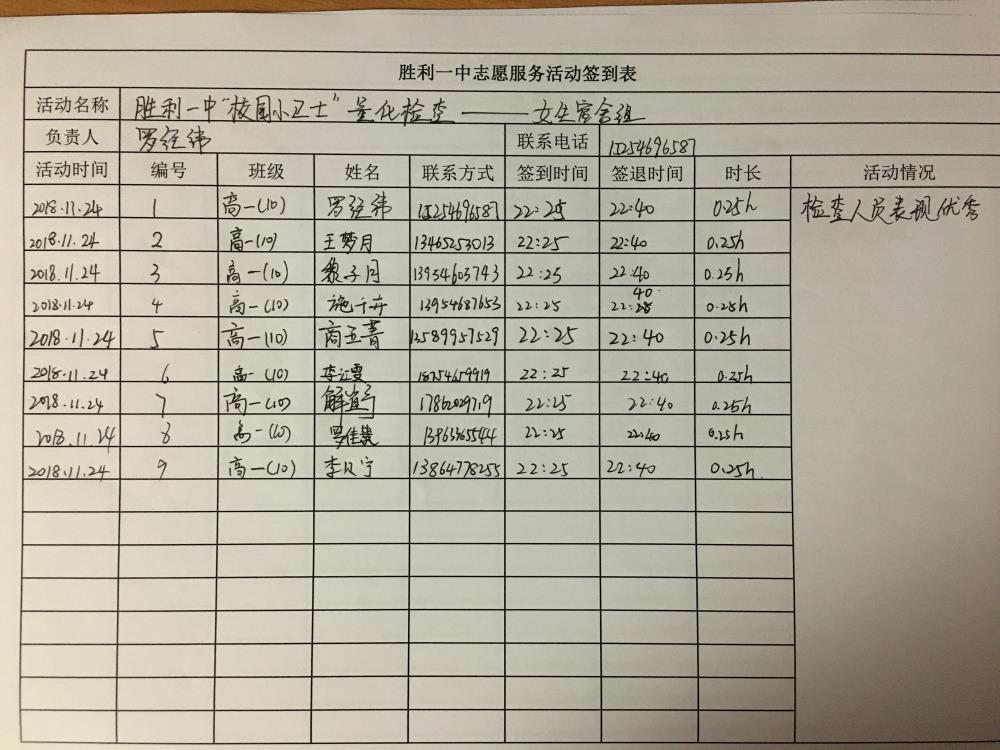 胜利一中志愿服务活动签到表
活动名称 胜利一中"校园小卫士"量化检查——女生宿舍组
负责人 罗经纬 联系电话 15254696587
活动时间 编号 班级 姓名 联系方式 签到时间 签退时间 时长 活动情况
2018.11.24 1 高一(10) 罗经纬 15254696587 22:25 22:40 0.25h 检查人员表现优秀
2018.11.24 2 高一(10) 王梦月 13465253013 22:25 22:40 0.25h
2018.11.24 3 高一(10) 黎子月 13954603743 22:25 22:40 0.25h
2018.11.24 4 高一(10) 施千卉 13954687653 22:25 22:40 0.25h
2018.11.24 5 高一(10) 商玉菁 13589957529 22:25 22:40 0.25h
2018.11.24 6 高一(10) 18754659919 22:25 22:40 0.25h
2018.11.24 7 高一(10) 22:25 22:40 0.25h
2018.11.24 8 高一(10) 22:25 22:40 0.25h
2018.11.24 9 高一(10) 13864778255 22:25 22:40 0.25h